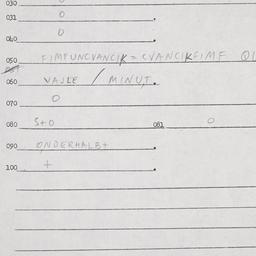 030
031 0
040 0
050 FIMFUNCVANCIK = CVANCIKFIMF
060 VAJLE / MINUT.
070 0
080 S+0 081 0
090 ONDERHALB+
100 +